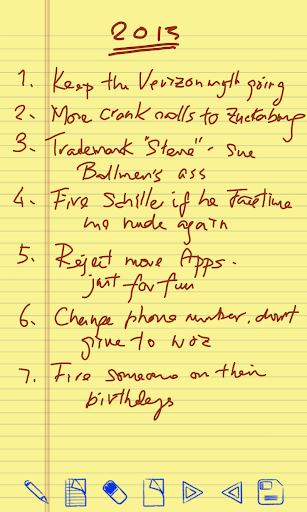 2013
1. Keep the Verizon myth going
2. More crank calls to Zuckerberg
3. Trademark "Steve" - sue
Ballmer's ass
4. Fire Schiller if he Facetime
me nude again
5. Reject more Apps.
just for fun
6. Change phone number, don't
give to woz
7. Fire someone on their
birthdays